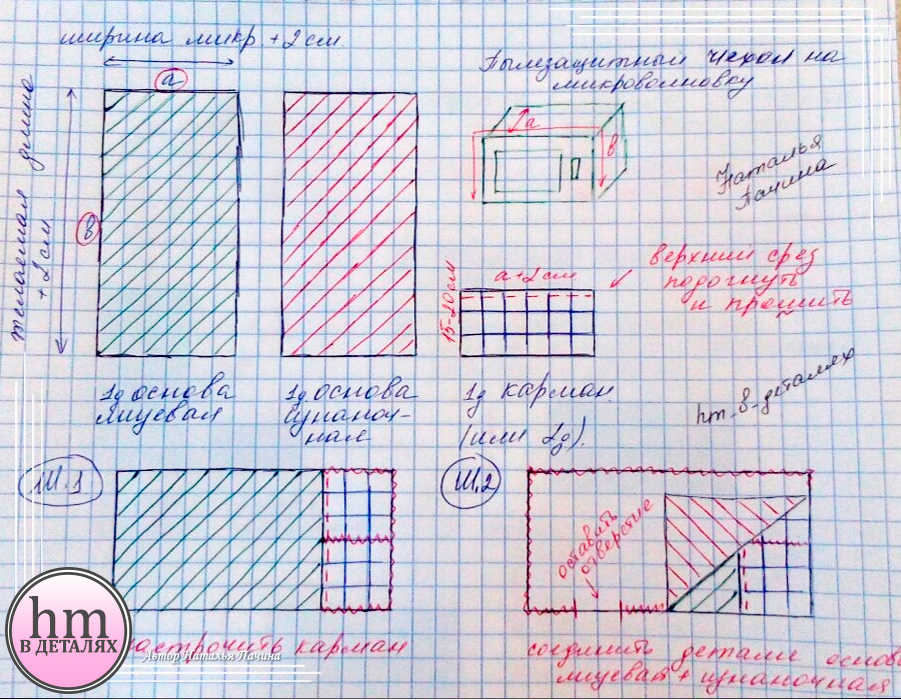 ширина микр + 2 см.
Пылезащитный чехол на
микроволновку
а
желаемая длина
+ 2 см
в
а
в
Наталья
Пачина
15-20 см
а+2 см
верхний срез
подогнуть
и прошить
1д основа
лицевая
1д основа
изнаноч-
ная
1д карман
(или 2д).
hm_в_деталях
Ш.1
Ш.2
оставить
отверстие
настрочить карман
соединить детали основы
лицевая + изнаночная
hm
В ДЕТАЛЯХ
Автор Наталья Пачина